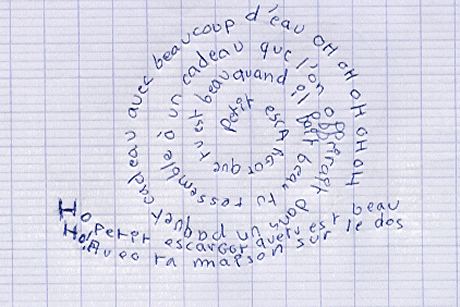 Petit escArgot que tu est beau quand il fait beau tu ressemble à un cadeau que l'on offrerait dans un paquet cadeau avec beaucoup d'eau OH OH OH OH OH
Ho, Petit escargot que tu est beau
Ho! Avec ta maison sur le dos